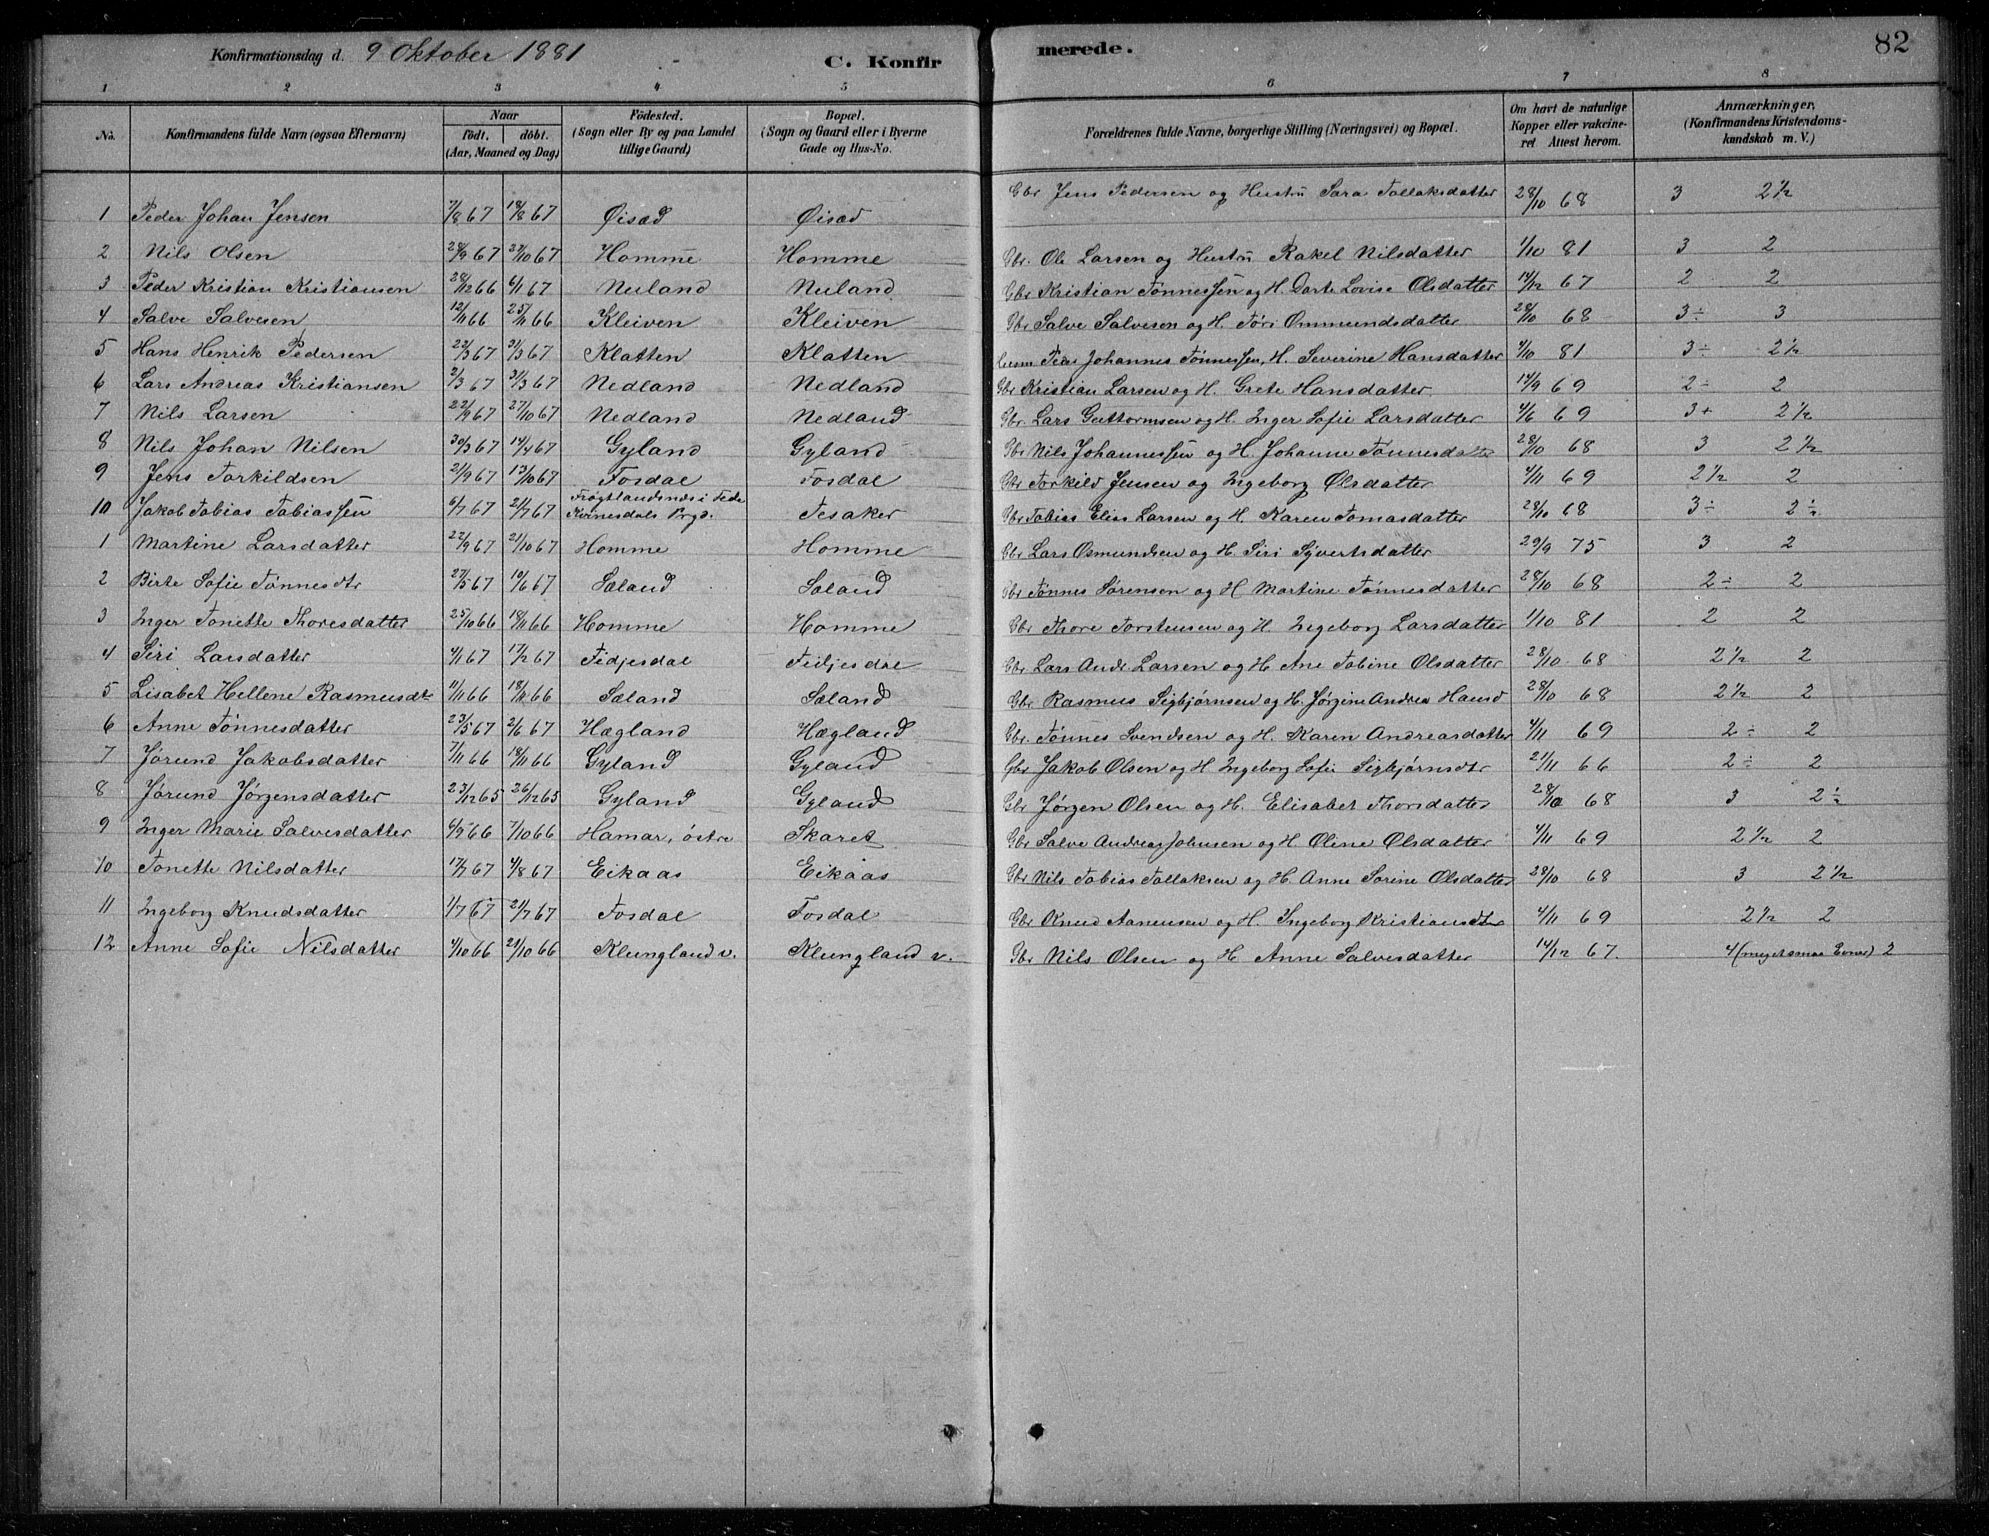 Konfirmationsdag d. 9 Oktober 1881 C. Konfirmerede. 82
1 2 3 4 5 6 7 8
No. Konfirmandens fulde Navn (ogsaa Efternavn) Naar født. døbt. (Aar, Maaned og Dag) Fødested. (Sogn eller By og paa Landet tillige Gaard) Bopæl. (Sogn og Gaard eller i Byerne Gade og Hus-No. Forældrenes fulde Navne, borgerlige Stilling (Næringsvei) og Bopæl. Om havt de naturlige Kopper eller vakcineret Attest herom. Anmærkninger, (Konfirmandens Kristendomskundskab m. V.)
1 Peder Johan Jensen 7/8 67 18/8 67 Øisæd Øisæd Gbr Jens Pedersen og Hustru Sara Tollaksdatter 28/10 68 3 2½
2 Nils Olsen 28/9 67 27/10 67 Homme Homme Gbr. Ole Larsen og Hustru Rakel Nilsdatter 1/10 81 3 2
3 Peder Kristian Kristiansen 28/12 66 6/1 67 Nuland Nuland Gbr Kristian Tønnessen og H. Dorte Lovise Olsdatter 14/12 67 2 2
4 Salve Salvesen 12/11 66 25/11 66 Kleiven Kleiven Gbr Salve Salvesen og H. Tøri Ommundsdatter 28/10 68 3÷ 3
5 Hans Henrik Pedersen 22/3 67 31/3 67 Klatten Klatten Husm Peder Johannes Tønnessen, H. Severine Hansdatter 1/10 81 3÷ 2½
6 Lars Andreas Kristiansen 2/3 67 31/3 67 Nedland Nedland Gbr Kristian Larsen og H. Grete Hansdatter 14/9 69 2÷ 2
7 Nils Larsen 22/9 67 27/10 67 Nedland Nedland Gbr. Lars Guttormsen og H. Inger Sofie Larsdatter 4/6 69 3+ 2½
8 Nils Johan Nilsen 30/3 67 14/4 67 Gyland Gyland Gbr Nils Johannessen og H. Johanne Tønnesdatter 28/10 68 3 2½
9 Jens Torkildsen 21/9 67 13/10 67 Fosdal Fosdal Gbr Torkild Jensen og Ingeborg Olsdatter 4/11 69 2½ 2
10 Jakob Tobias Tobiassen 6/7 67 21/7 67 Frøytlandsnes i Feda Kvinesdals Prgd. Tesaker Gbr Tobias Elias Larsen og H. Karen Tomasdatter 28/10 68 3÷ 2½
1 Martine Larsdatter 22/9 67 21/10 67 Homme Homme Gbr Lars Osmundsen og H. Siri Syvertsdatter 29/9 75 3 2
2 Birte Sofie Tønnesdtr 27/5 67 10/6 67 Søland Søland Gbr Tønnes Sørensen og H Martine Tønnesdatter 28/10 68 2÷ 2
3 Inger Tonette Thoresdatter 25/10 66 18/11 66 Homme Homme Gbr Thore Torstensen og H. Ingeborg Larsdatter 1/10 81 2 2
4 Siri Larsdatter 4/1 67 17/2 67 Fidjesdal Fidjesdal Gbr Lars Andr. Larsen og H. Ane Tobine Olsdatter 28/10 68 2½ 2
5 Lisabet Hellene Rasmusdt 11/11 66 18/11 66 Sæland Sæland Gbr Rasmus Sigbjørnsen og H. Jørgine Andrea Hansd 28/10 68 2½ 2
6 Anne Tønnesdatter 23/5 67 2/6 67 Hægland Hægland Gbr. Tønnes Svendsen og H. Karen Andreasdatter 4/11 69 2÷ 2
7 Jørund Jakobsdatter 7/11 66 18/11 66 Gyland Gyland Gbr Jakob Olsen og H Ingeborg Sofie Sigbjørnsdtr 21/11 66 2÷ 2
8 Jørund Jørgensdatter 23/12 65 26/12 65 Gyland Gyland Gbr Jørgen Olsen og H. Elisabet Thorsdatter 28/10 68 3 2½
9 Inger Marie Salvesdatter 6/9 66 7/10 66 Hamar, østre Skaret Gbr Salve Andreas Johnsen og H Oline Olsdatter 4/11 69 2½ 2
10 Tonette Nilsdatter 17/7 67 4/8 67 Eikaas Eikaas Gbr Nils Tobias Tollaksen og H. Anne Sorine Olsdatter 28/10 68 3 2½
11 Ingeborg Knudsdatter 1/7 67 21/7 67 Fosdal Fosdal Gbr Knud Aanensen og H. Ingeborg Kristiansdtr 4/11 69 2½ 2
12 Anne Sofie Nilsdatter 4/10 66 21/10 66 Klungland v. Klungland v. Gbr Nils Olsen og H Anne Salvesdatter 14/12 67. 4 (meget smaa Evner) 2